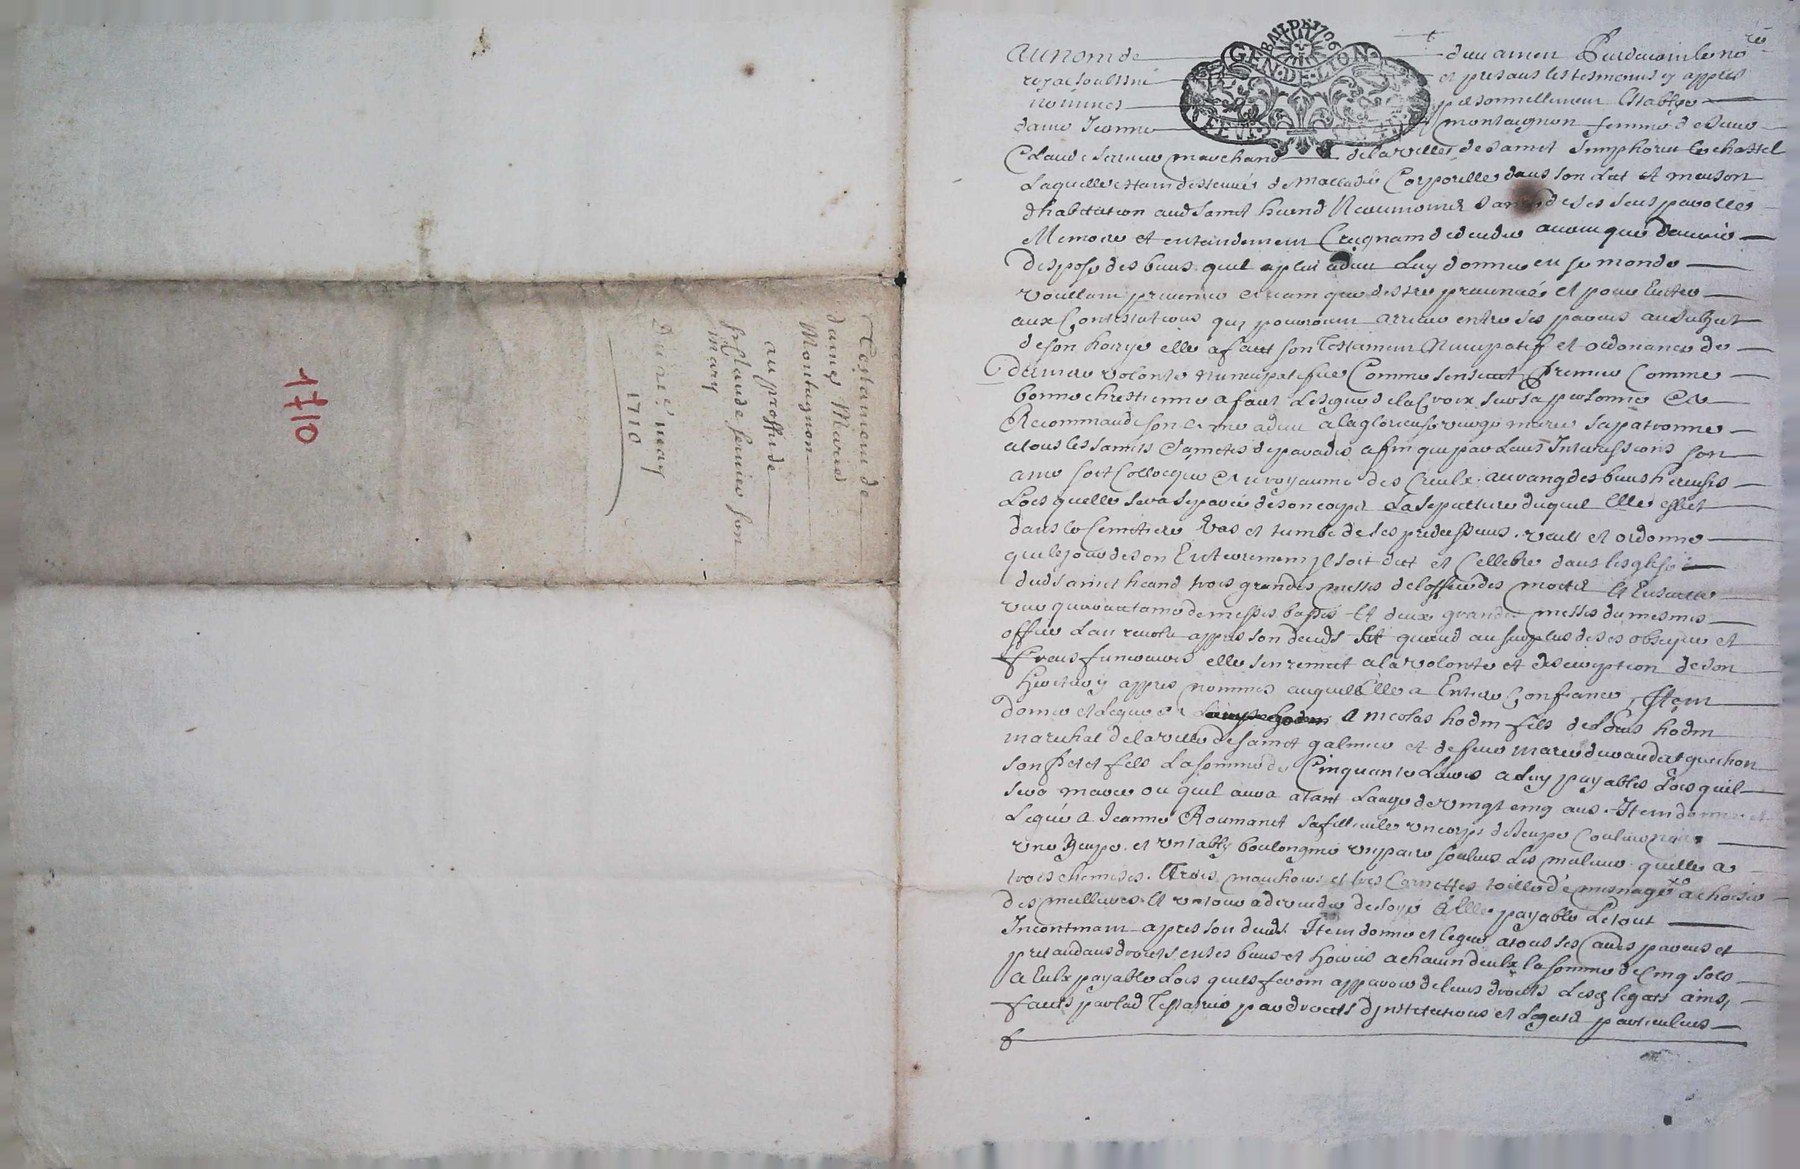 Testament de
dame Marie
Montagnon
au proffit de
Sr Claude ferrier son
mary
Du 12e may
1710
1710
BAIL DE 1706
GEN. DE LION
Au nom de dieu amen Pardevant le no re
royal soubsné et presans les tesmoins cy appres
nommes personnellement establye
dame Jeanne montaignon femme de sieur
Claude ferrier marchand de la ville de Sainct Simphorien le chastel
Laquelle estant destenue de malladie Corporelle dans son Lict et maison
d'habitation aud Sainct heand Neaumoins saine de ses sens parolles
Memoire et entendement Craignant de deceder avant que d'avoir
Dispose des biens quil a pleu a dieu Luy donner en ce monde
voullant prevenir et non que destre prevenue et pour Eviter
aux Contestations quy pourroient arriver entre ses parens au Subject
de son hoirye elle a faict son Testament Nuncupatif et ordonance de
Derniere volonte nuncupatifve Comme sensuit Premier Comme
bonne chrestienne a faict Le signe de la Croix sur sa personne et
Recommande son ame a dieu a la glorieuse vierge marie sa patronne
a tous les Saincts et Sainctes de paradis afin que par Leurs Intersessions son
ame soit Collocquee en royaume des Cieulx au rang des bien heureux
Lors quelle sera separee de son corps La sepulture duquel Elle eslit
dans le Cemettiere vas et tumbe de ses predesseurs. veult et ordonne
que le jour de son Enterrement Il soit dict et Cellebre dans lesglise
dud Sainct heand trois grandes messes de loffice des mortz Et Ensuitte
une quarantaine de messes basses Et deux grandes messes du mesme
office Lan revolu appres son deceds Et quand au surplus de ses obseques et
frais funeraires elle sen remet a la volonte et discreption de son
heritier cy appres nomme auquel Elle a Entiere Confiance, Item
donne et Legue a Nicolas hodin fils de Louis hodin
mareschal de la ville de Sainct galmier et de feue marie guichon
son Petit fils La somme de Cinquante Livres a Luy payables Lors quil
sera marie ou quil aura atant Laage de vingt cinq ans. Item donne et
Legue a Jeanne Roumanet sa fillieulle un corps de Juppe Couleur noir
une Juppe et un tablier boulongne un paire souliers Les meilleurs quelle a
trois chemises. Trois mouchoirs et trois Cornettes toille de mesnage a choisir
des meilleures Et un tour a devuider de soye a Elle payable Le tout
Incontinant apres son deceds. Item donne et legue a tous ses autres parens et
pretandans droicts en ses biens et hoiries a chacun deulx la somme de Cinq sols
a Eulx payable Lors quils feront apparoir de leurs droicts Lesq legats ainsy
faicts par lad Testatrice par droicts dinstitutions et Legats particuliers